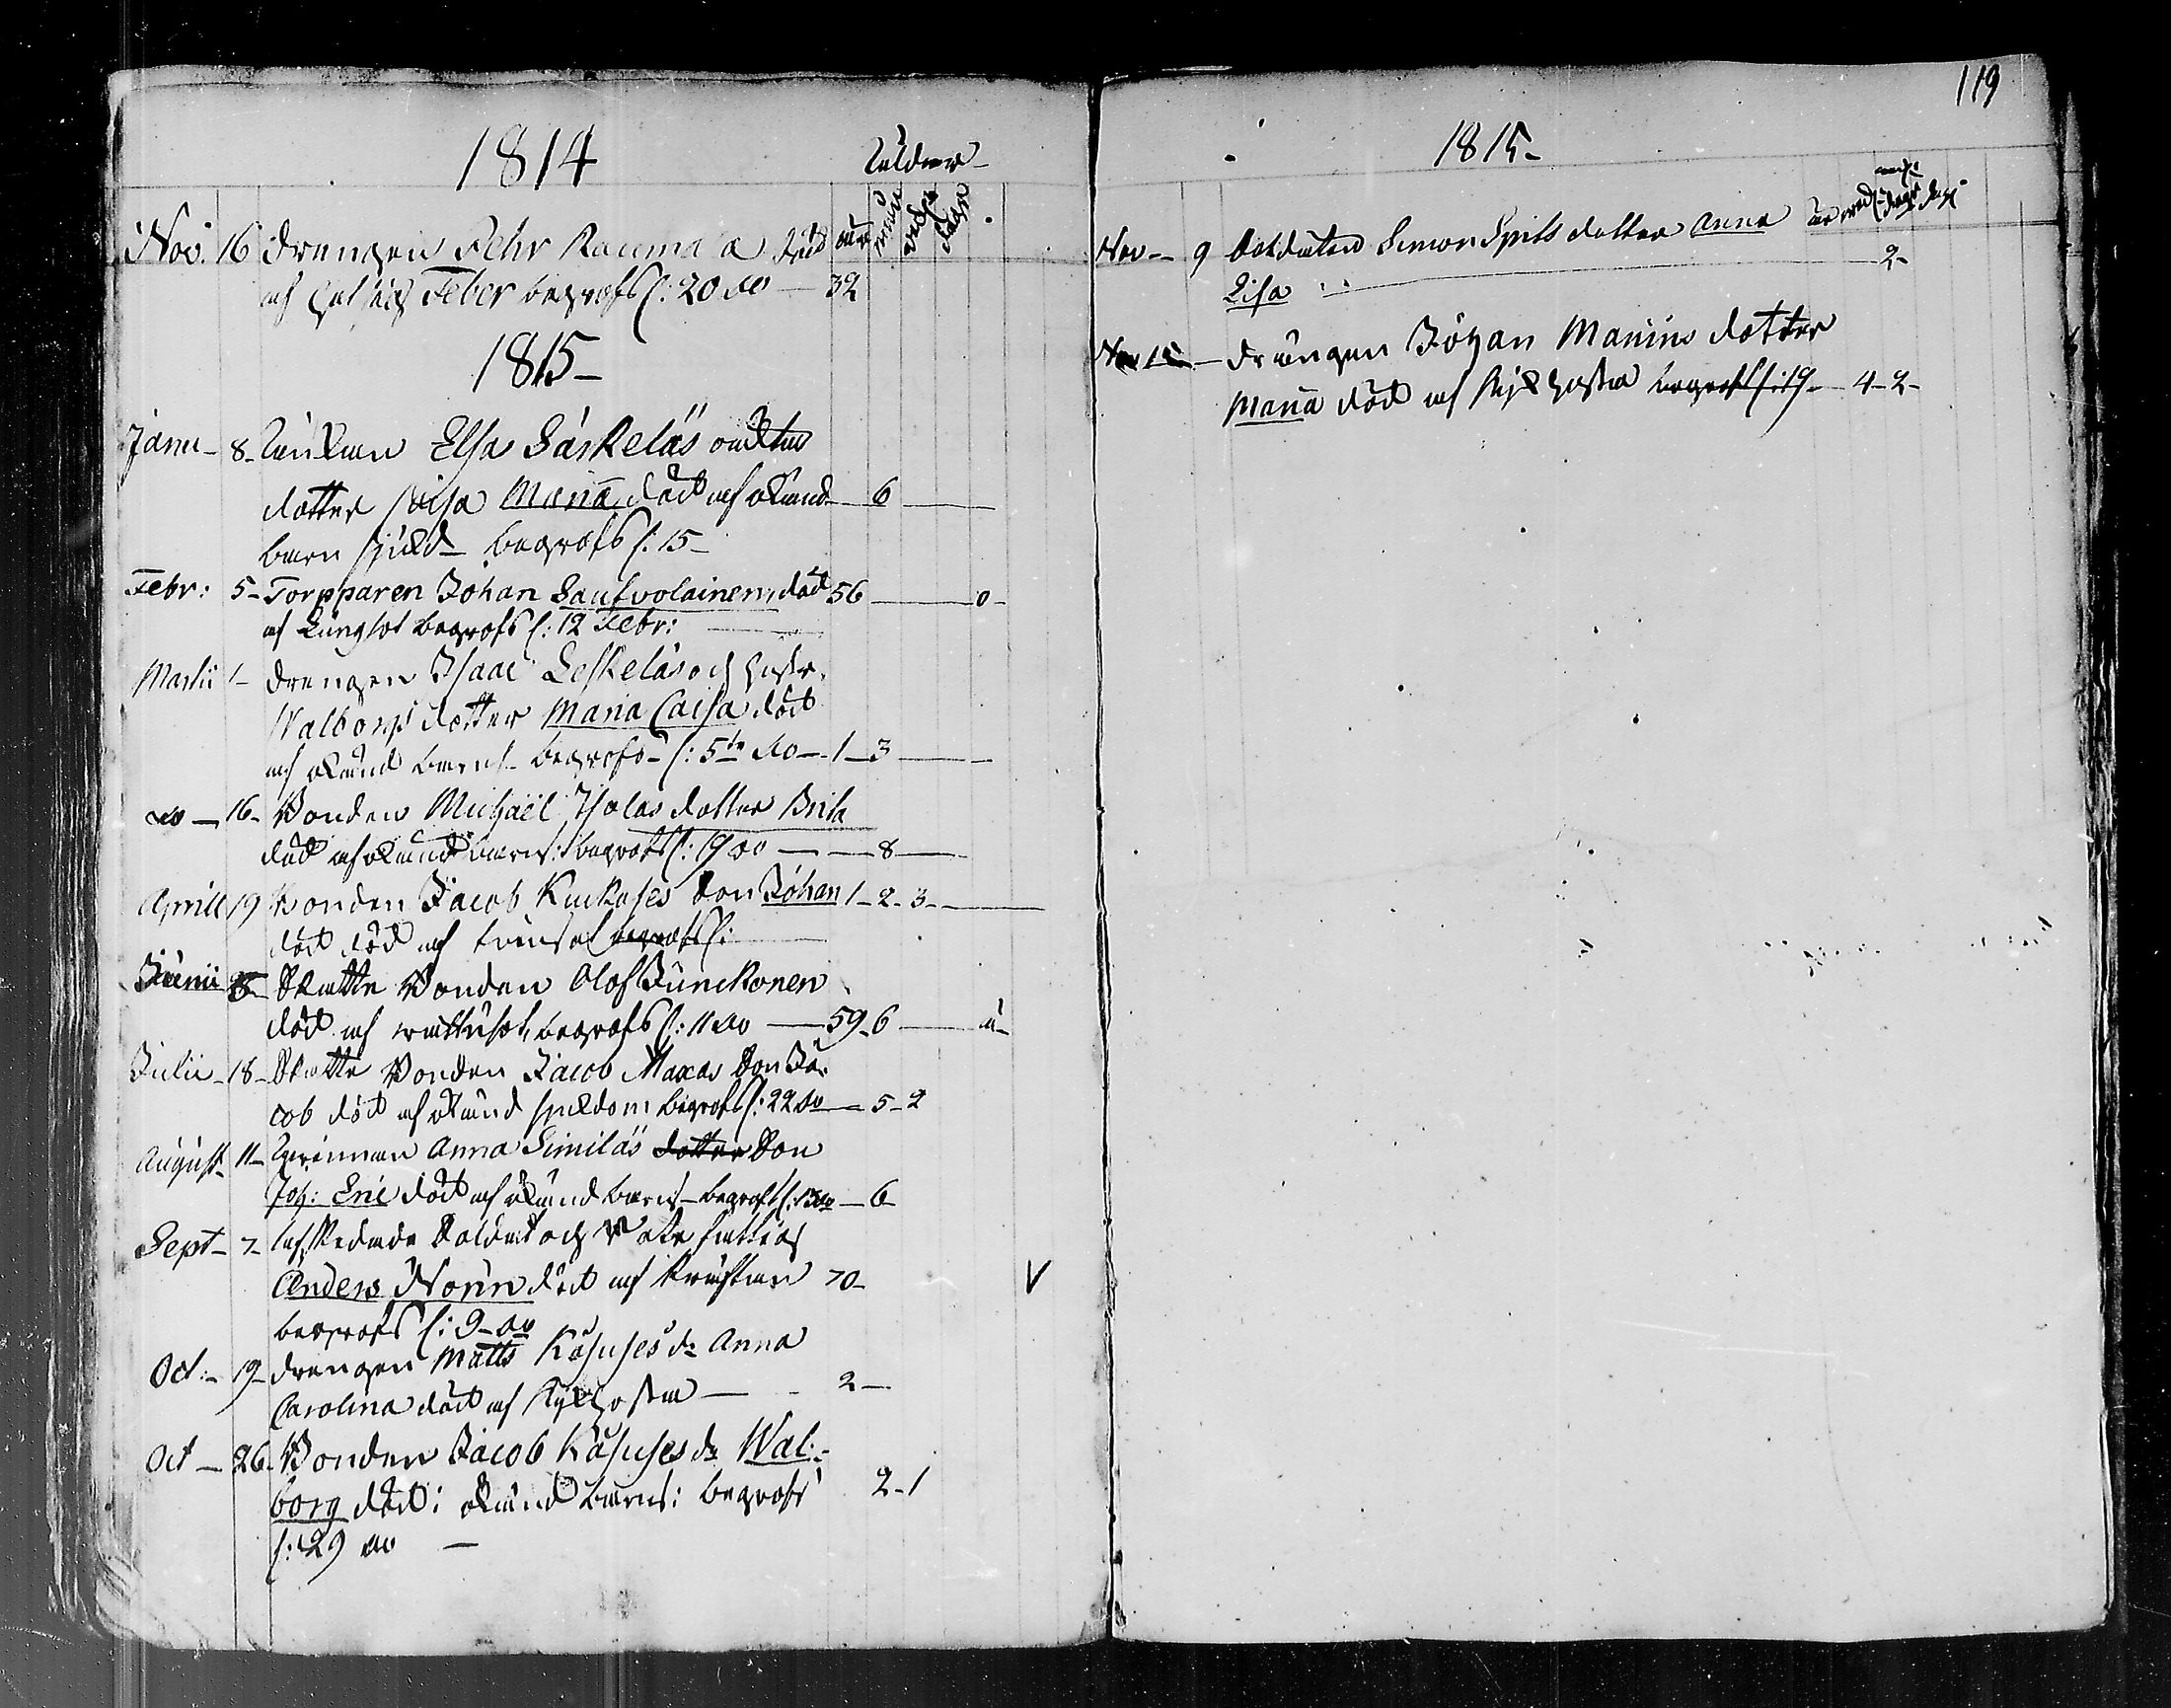 119
1814
Ålder
år månad veckor dagar
Nov. 16 Drengen Pehr Rauma död
af hetsig Feber begrofs d: 20 do — 32
1815
Janu- 8- Enkan Elsa Särkeläs
dotter Caisa Maria död af okänd 6
barn sjukd- begrofs d: 15-
Febr: 5- Torpparen Johan Saufvolainen, död 56 — 0-
af Lungsot begrofs d: 12 Febr:
Martii 1- Drengen Isaac Leskeläs och hustr.
Walborgs dotter Maria Caisa död
af okänd barns- begrofs- d: 5te do — 1 — 3
do — 16- Bonden Michaël Isolas dotter Brita
död af okänd barns: begrofs d: 19 do — 8
Aprill 19 Bonden Jacob Kuckoses Son Johan 1- 2- 3-
död död af begrofs d:
Junii 5- Skatte Bonden Olof Junckonen
död af wattusot, begrofs d: 11 do — 59- 6
Julii- 18- Skatte Bonden Jacob Maxas Son Ja-
cob död af okänd sjukdom begrofs d: 22 do — 5- 2
August- 11- Qvinnan Anna Similäs dotter Son
Joh: Eric död af okänd barns- begrofs d: 13 do — 6
Sept- 7- Afskedade Soldat och fattig
Anders Norin död af 70-
begrofs d: 9- do
Oct:- 19- Drengen Matts Kåsuses dr Anna
Carolina död af Kikhosta — 2-
Oct — 26- Bonden Jacob Kåsuses dr Wal-
borg död: okänd barns: begrofs 2- 1
d: 29 do —
1815-
Nov- 9 Soldaten Simon Spits dotter Anna
Lisa 2-
Nov 15 — Drängen Johan Manins dotter
Maria död af Kikhosta begrofs d: 19- 4- 2-
V